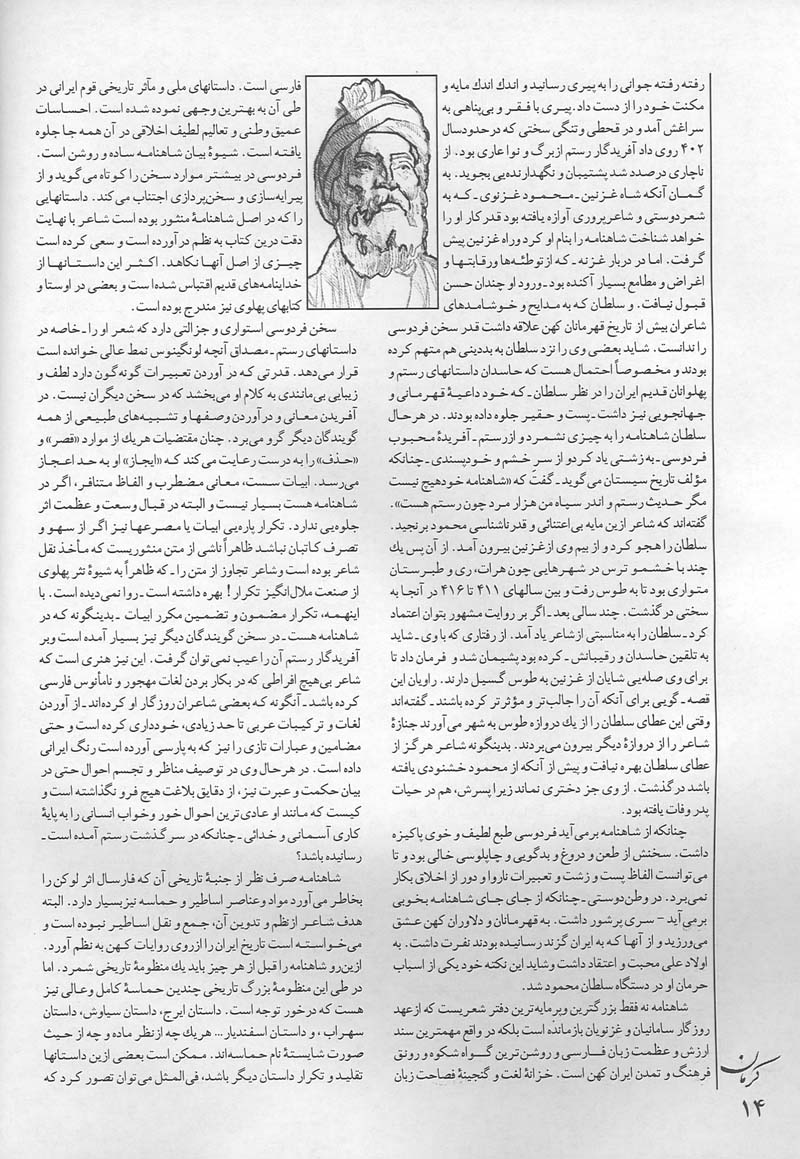 رفته رفته جوانی را به پیری رسانید و اندك اندك مایه و
مکنت خود را از دست داد. پیری با فقر و بی‌پناهی به
سراغش آمد و در قحطی و تنگی سختی که در حدود سال
۴۰۲ روی داد آفریدگار رستم از برگ و نوا عاری بود. از
ناچاری درصدد شد پشتیبان و نگهدارنده‌یی بجوید. به
گمان آنکه شاه غزنین ـ محمود غزنوی ـ که به
شعردوستی و شاعرپروری آوازه یافته بود قدر کار او را
خواهد شناخت شاهنامه را بنام او کرد و راه غزنین پیش
گرفت. اما در دربار غزنه ـ که از توطئه‌ها و رقابتها و
اغراض و مطامع بسیار آکنده بود ـ ورود او چندان حسن
قبول نیافت. و سلطان که به مدایح و خوشامدهای
شاعران بیش از تاریخ قهرمانان کهن علاقه داشت قدر سخن فردوسی
را ندانست. شاید بعضی وی را نزد سلطان به بددینی هم متهم کرده
بودند و مخصوصاً احتمال هست که حاسدان داستانهای رستم و
پهلوانان قدیم ایران را در نظر سلطان ـ که خود داعیهٔ قهرمانی و
جهانجویی نیز داشت ـ پست و حقیر جلوه داده بودند. در هر حال
سلطان شاهنامه را به چیزی نشمرد و از رستم ـ آفریدهٔ محبوب
فردوسی ـ به زشتی یاد کرد و از سر خشم و خودپسندی ـ چنانکه
مؤلف تاریخ سیستان می‌گوید ـ گفت که «شاهنامه خود هیچ نیست
مگر حدیث رستم و اندر سپاه من هزار مرد چون رستم هست».
گفته‌اند که شاعر ازین مایه بی‌اعتنائی و قدرناشناسی محمود برنجید.
سلطان را هجو کرد و از بیم وی از غزنین بیرون آمد. از آن پس یك
چند با خشم و ترس در شهرهایی چون هرات، ری و طبرستان
متواری بود تا به طوس رفت و بین سالهای ۴۱۱ تا ۴۱۶ در آنجا به
سختی درگذشت. چند سالی بعد ـ اگر بر روایت مشهور بتوان اعتماد
کرد ـ سلطان را به مناسبتی از شاعر یاد آمد. از رفتاری که با وی ـ شاید
به تلقین حاسدان و رقیبانش ـ کرده بود پشیمان شد و فرمان داد تا
برای وی صله‌یی شایان از غزنین به طوس گسیل دارند. راویان این
قصه ـ گویی برای آنکه آن را جالب‌تر و مؤثرتر کرده باشند ـ گفته‌اند
وقتی این عطای سلطان را از یك دروازه طوس به شهر می‌آوردند جنازهٔ
شاعر را از دروازهٔ دیگر بیرون می‌بردند. بدینگونه شاعر هرگز از
عطای سلطان بهره نیافت و پیش از آنکه از محمود خشنودی یافته
باشد درگذشت. از وی جز دختری نماند زیرا پسرش، هم در حیات
پدر وفات یافته بود.
چنانکه از شاهنامه برمی‌آید فردوسی طبع لطیف و خوی پاکیزه
داشت. سخنش از طعن و دروغ و بدگویی و چاپلوسی خالی بود و تا
می‌توانست الفاظ پست و زشت و تعبیرات ناروا و دور از اخلاق بکار
نمی‌برد. در وطن‌دوستی ـ چنانکه از جای جای شاهنامه بخوبی
برمی‌آید – سری پرشور داشت. به قهرمانان و دلاوران کهن عشق
می‌ورزید و از آنها که به ایران گزند رسانیده بودند نفرت داشت. به
اولاد علی محبت و اعتقاد داشت و شاید این نکته خود یکی از اسباب
حرمان او در دستگاه سلطان محمود شد.
شاهنامه نه فقط بزرگترین و پرمایه‌ترین دفتر شعریست که از عهد
روزگار سامانیان و غزنویان بازمانده است بلکه در واقع مهمترین سند
ارزش و عظمت زبان فارسی و روشن‌ترین گواه شکوه و رونق
فرهنگ و تمدن ایران کهن است. خزانهٔ لغت و گنجینهٔ فصاحت زبان
فارسی است. داستانهای ملی و مآثر تاریخی قوم ایرانی در
طی آن به بهترین وجهی نموده شده است. احساسات
عمیق وطنی و تعالیم لطیف اخلاقی در آن همه جا جلوه
یافته است. شیوهٔ بیان شاهنامه ساده و روشن است.
فردوسی در بیشتر موارد سخن را کوتاه می‌گوید و از
پیرایه‌سازی و سخن‌پردازی اجتناب می‌کند. داستانهایی
را که در اصل شاهنامهٔ منثور بوده است شاعر با نهایت
دقت درین کتاب به نظم درآورده است و سعی کرده است
چیزی از اصل آنها نکاهد. اکثر این داستانها از
خداینامه‌های قدیم اقتباس شده است و بعضی در اوستا و
کتابهای پهلوی نیز مندرج بوده است.
سخن فردوسی استواری و جزالتی دارد که شعر او را ـ خاصه در
داستانهای رستم ـ مصداق آنچه لونگینوس نمط عالی خوانده است
قرار می‌دهد. قدرتی که در آوردن تعبیرات گونه‌گون دارد لطف و
زیبایی بی‌مانندی به کلام او می‌بخشد که در سخن دیگران نیست. در
آفریدن معانی و در آوردن وصفها و تشبیه‌های طبیعی از همه
گویندگان دیگر گرو می‌برد. چنان مقتضیات هریك از موارد «قصر» و
«حذف» را به درست رعایت می‌کند که «ایجاز» او به حد اعجاز
می‌رسد. ابیات سست، معانی مضطرب و الفاظ متنافر، اگر در
شاهنامه هست بسیار نیست و البته در قبال وسعت و عظمت اثر
جلوه‌یی ندارد. تکرار پاره‌یی ابیات یا مصرعها نیز اگر از سهو و
تصرف کاتبان نباشد ظاهراً ناشی از متن منثوریست که مأخذ نقل
شاعر بوده است و شاعر تجاوز از متن را ـ که ظاهراً به شیوهٔ نثر پهلوی
از صنعت ملال‌انگیز تکرار! بهره داشته است ـ روا نمی‌دیده است. با
اینهمه، تکرار مضمون و تضمین مکرر ابیات ـ بدینگونه که در
شاهنامه هست ـ در سخن گویندگان دیگر نیز بسیار آمده است و بر
آفریدگار رستم آن را عیب نمی‌توان گرفت. این نیز هنری است که
شاعر بی‌هیچ افراطی که در بکار بردن لغات مهجور و نامأنوس فارسی
کرده باشد ـ آنگونه که بعضی شاعران روزگار او کرده‌اند ـ از آوردن
لغات و ترکیبات عربی تا حد زیادی، خودداری کرده است و حتی
مضامین و عبارات تازی را نیز که به پارسی آورده است رنگ ایرانی
داده است. در هر حال وی در توصیف مناظر و تجسم احوال حتی در
بیان حکمت و عبرت نیز، از دقایق بلاغت هیچ فرو نگذاشته است و
کیست که مانند او عادی‌ترین احوال خور و خواب انسانی را به پایهٔ
کاری آسمانی و خدائی ـ چنانکه در سرگذشت رستم آمده است ـ
رسانیده باشد؟
شاهنامه صرف نظر از جنبهٔ تاریخی آن که فارسال اثر لوکن را
بخاطر می‌آورد مواد و عناصر اساطیر و حماسه نیز بسیار دارد. البته
هدف شاعر از نظم و تدوین آن، جمع و نقل اساطیر نبوده است و
می‌خواسته است تاریخ ایران را از روی روایات کهن به نظم آورد.
ازین‌رو شاهنامه را قبل از هر چیز باید یك منظومهٔ تاریخی شمرد. اما
در طی این منظومهٔ بزرگ تاریخی چندین حماسهٔ کامل و عالی نیز
هست که درخور توجه است. داستان ایرج، داستان سیاوش، داستان
سهراب، و داستان اسفندیار... هریك چه از نظر ماده و چه از حیث
صورت شایستهٔ نام حماسه‌اند. ممکن است بعضی ازین داستانها
تقلید و تکرار داستان دیگر باشد، فی‌المثل می‌توان تصور کرد که
کرمان
۱۴